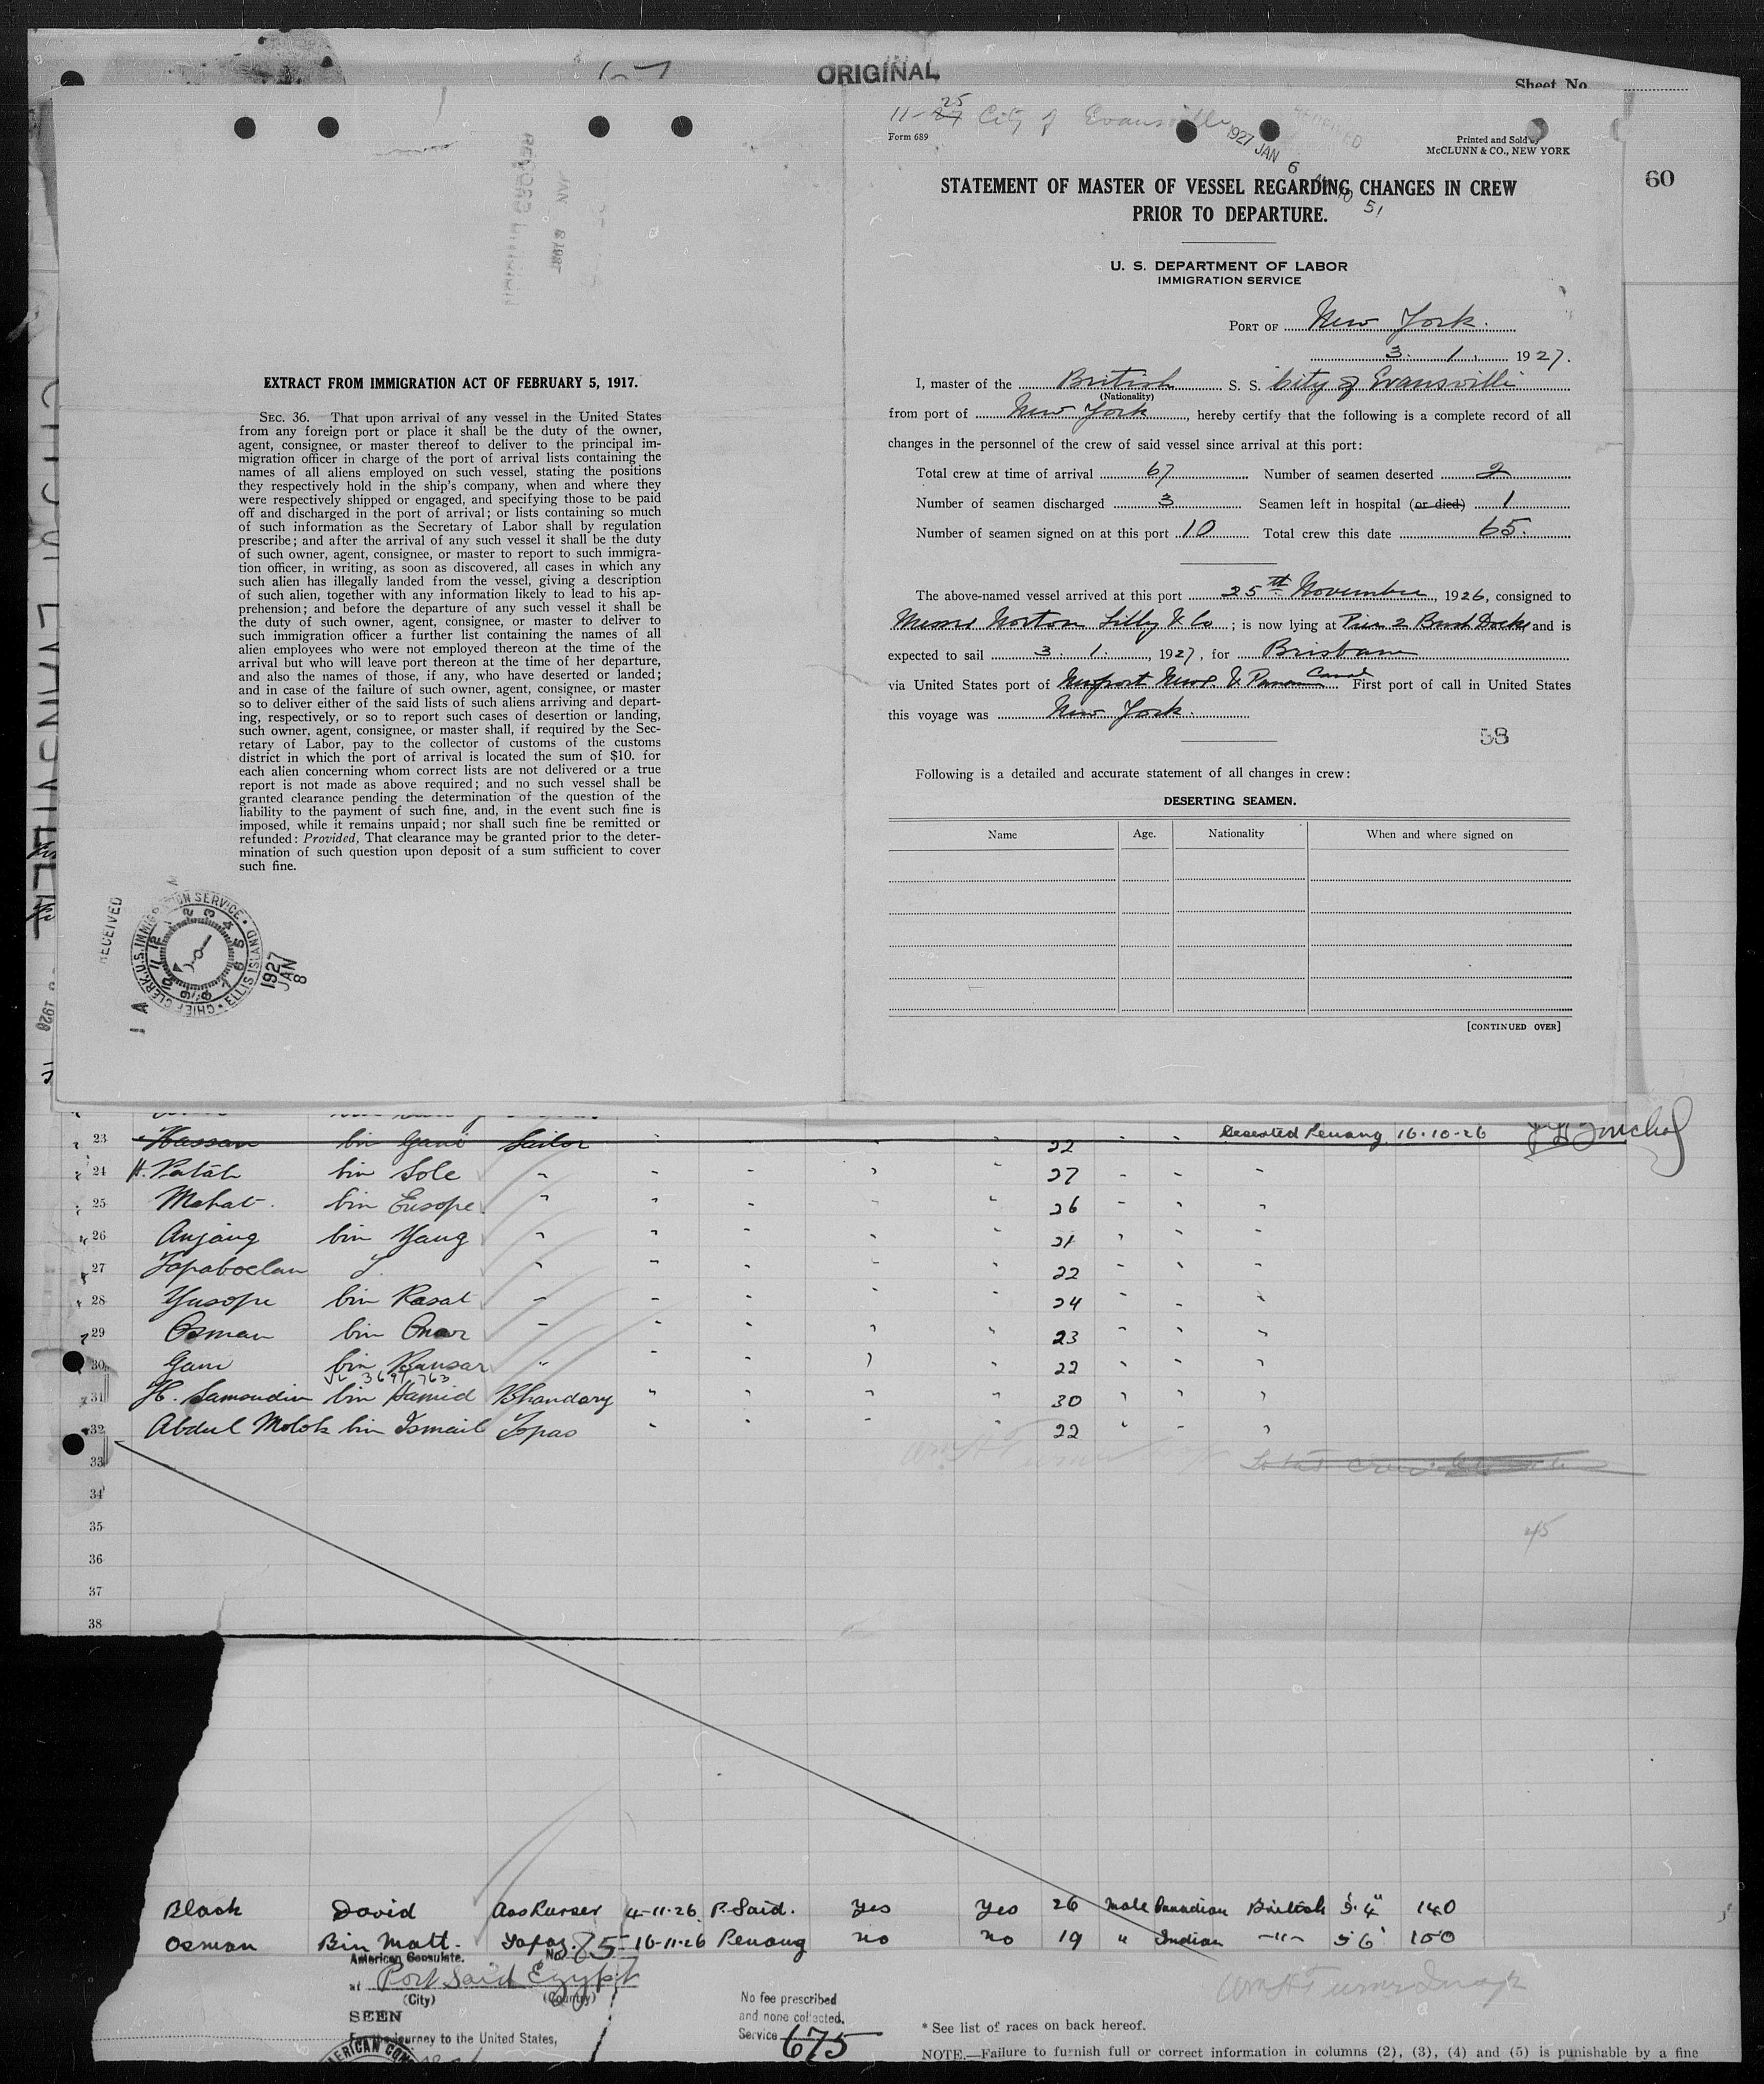 ORIGINAL
Sheet No.
60
EXTRACT FROM IMMIGRATION ACT OF FEBRUARY 5, 1917.
SEC. 36. That upon arrival of any vessel in the United States
from any foreign port or place it shall be the duty of the owner,
agent, consignee, or master thereof to deliver to the principal im-
migration officer in charge of the port of arrival lists containing the
names of all aliens employed on such vessel, stating the positions
they respectively hold in the ship's company, when and where they
were respectively shipped or engaged, and specifying those to be paid
off and discharged in the port of arrival; or lists containing so much
of such information as the Secretary of Labor shall by regulation
prescribe; and after the arrival of any such vessel it shall be the duty
of such owner, agent, consignee, or master to report to such immigra-
tion officer, in writing, as soon as discovered, all cases in which any
such alien has illegally landed from the vessel, giving a description
of such alien, together with any information likely to lead to his ap-
prehension; and before the departure of any such vessel it shall be
the duty of such owner, agent, consignee, or master to deliver to
such immigration officer a further list containing the names of all
alien employees who were not employed thereon at the time of the
arrival but who will leave port thereon at the time of her departure,
and also the names of those, if any, who have deserted or landed;
and in case of the failure of such owner, agent, consignee, or master
so to deliver either of the said lists of such aliens arriving and depart-
ing, respectively, or so to report such cases of desertion or landing,
such owner, agent, consignee, or master shall, if required by the Sec-
retary of Labor, pay to the collector of customs of the customs
district in which the port of arrival is located the sum of $10. for
each alien concerning whom correct lists are not delivered or a true
report is not made as above required; and no such vessel shall be
granted clearance pending the determination of the question of the
liability to the payment of such fine, and, in the event such fine is
imposed, while it remains unpaid; nor shall such fine be remitted or
refunded: Provided, That clearance may be granted prior to the deter-
mination of such question upon deposit of a sum sufficient to cover
such fine.
RECEIVED
CHIEF CLERK, U.S. IMMIGRATION SERVICE • ELLIS ISLAND
1927 JAN 8
11-25 City of Evansville
Form 689
RECEIVED
1927 JAN 6
Printed and Sold by
McCLUNN & CO., NEW YORK
STATEMENT OF MASTER OF VESSEL REGARDING CHANGES IN CREW
PRIOR TO DEPARTURE.
U. S. DEPARTMENT OF LABOR
IMMIGRATION SERVICE
PORT OF New York.
3. 1. 1927.
I, master of the British S. S. City of Evansville
(Nationality)
from port of New York, hereby certify that the following is a complete record of all
changes in the personnel of the crew of said vessel since arrival at this port:
Total crew at time of arrival 67 Number of seamen deserted 2
Number of seamen discharged 3 Seamen left in hospital (or died) 1
Number of seamen signed on at this port 10 Total crew this date 65.
The above-named vessel arrived at this port 25th November, 1926, consigned to
Messrs Norton Lilly & Co; is now lying at Pier 2 Bush Docks and is
expected to sail 3. 1., 1927, for Brisbane
via United States port of Newport News. & Panama Canal First port of call in United States
this voyage was New York.
58
Following is a detailed and accurate statement of all changes in crew:
DESERTING SEAMEN.
Name Age. Nationality When and where signed on
[CONTINUED OVER]
23 Hassan bin Gani Sailor 22 Deserted Penang 16-10-26
24 H. Patah bin Sole 27
25 Mahat. bin Eusope. 26
26 Anjang bin Yang 21
27 22
28 Yusope bin Rasat 24
29 Osman bin Omar 23
30 Gani bin 22
31 H. Samsudin bin Hamid Bhandary 30
32 Abdul Molok bin Ismail Topas 22
33
34
35
36
37
38
45
Black David Ass Purser 4-11-26 P. Said. Yes Yes 26 Male Canadian British 5'4" 140
Osman Bin Matt. Topaz 16-11-26 Penang no no 19 " Indian -"- 5 6' 150
American Consulate. No. 75
at Port Said Egypt
(City) (Country)
SEEN
For the journey to the United States,
AMERICAN CON
No fee prescribed
and none collected.
Service 675
* See list of races on back hereof.
NOTE.—Failure to furnish full or correct information in columns (2), (3), (4) and (5) is punishable by a fine